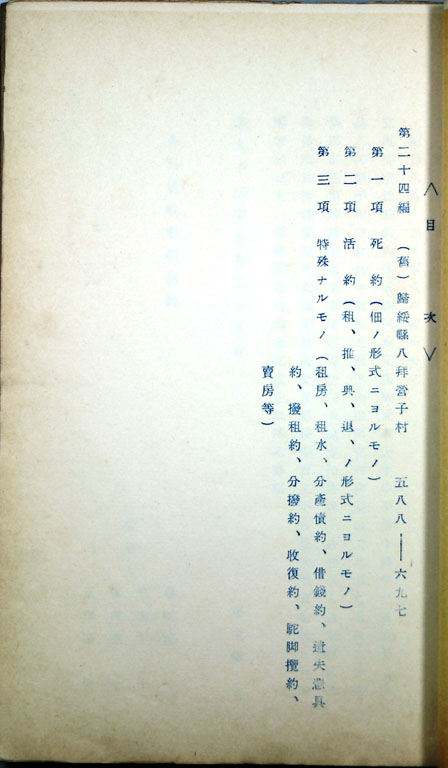 〈目次〉
第二十四編 (舊)歸綏縣八拜營子村 五八八——六九七
第一項 死約(佃ノ形式ニヨルモノ)
第二項 活約(租、推、典、退、ノ形式ニヨルモノ)
第三項 特殊ナルモノ(租房、租水、分產憤約、借錢約、遺失
約、撥租約、分撥約、收復約、駝脚攬約、
賣房等)